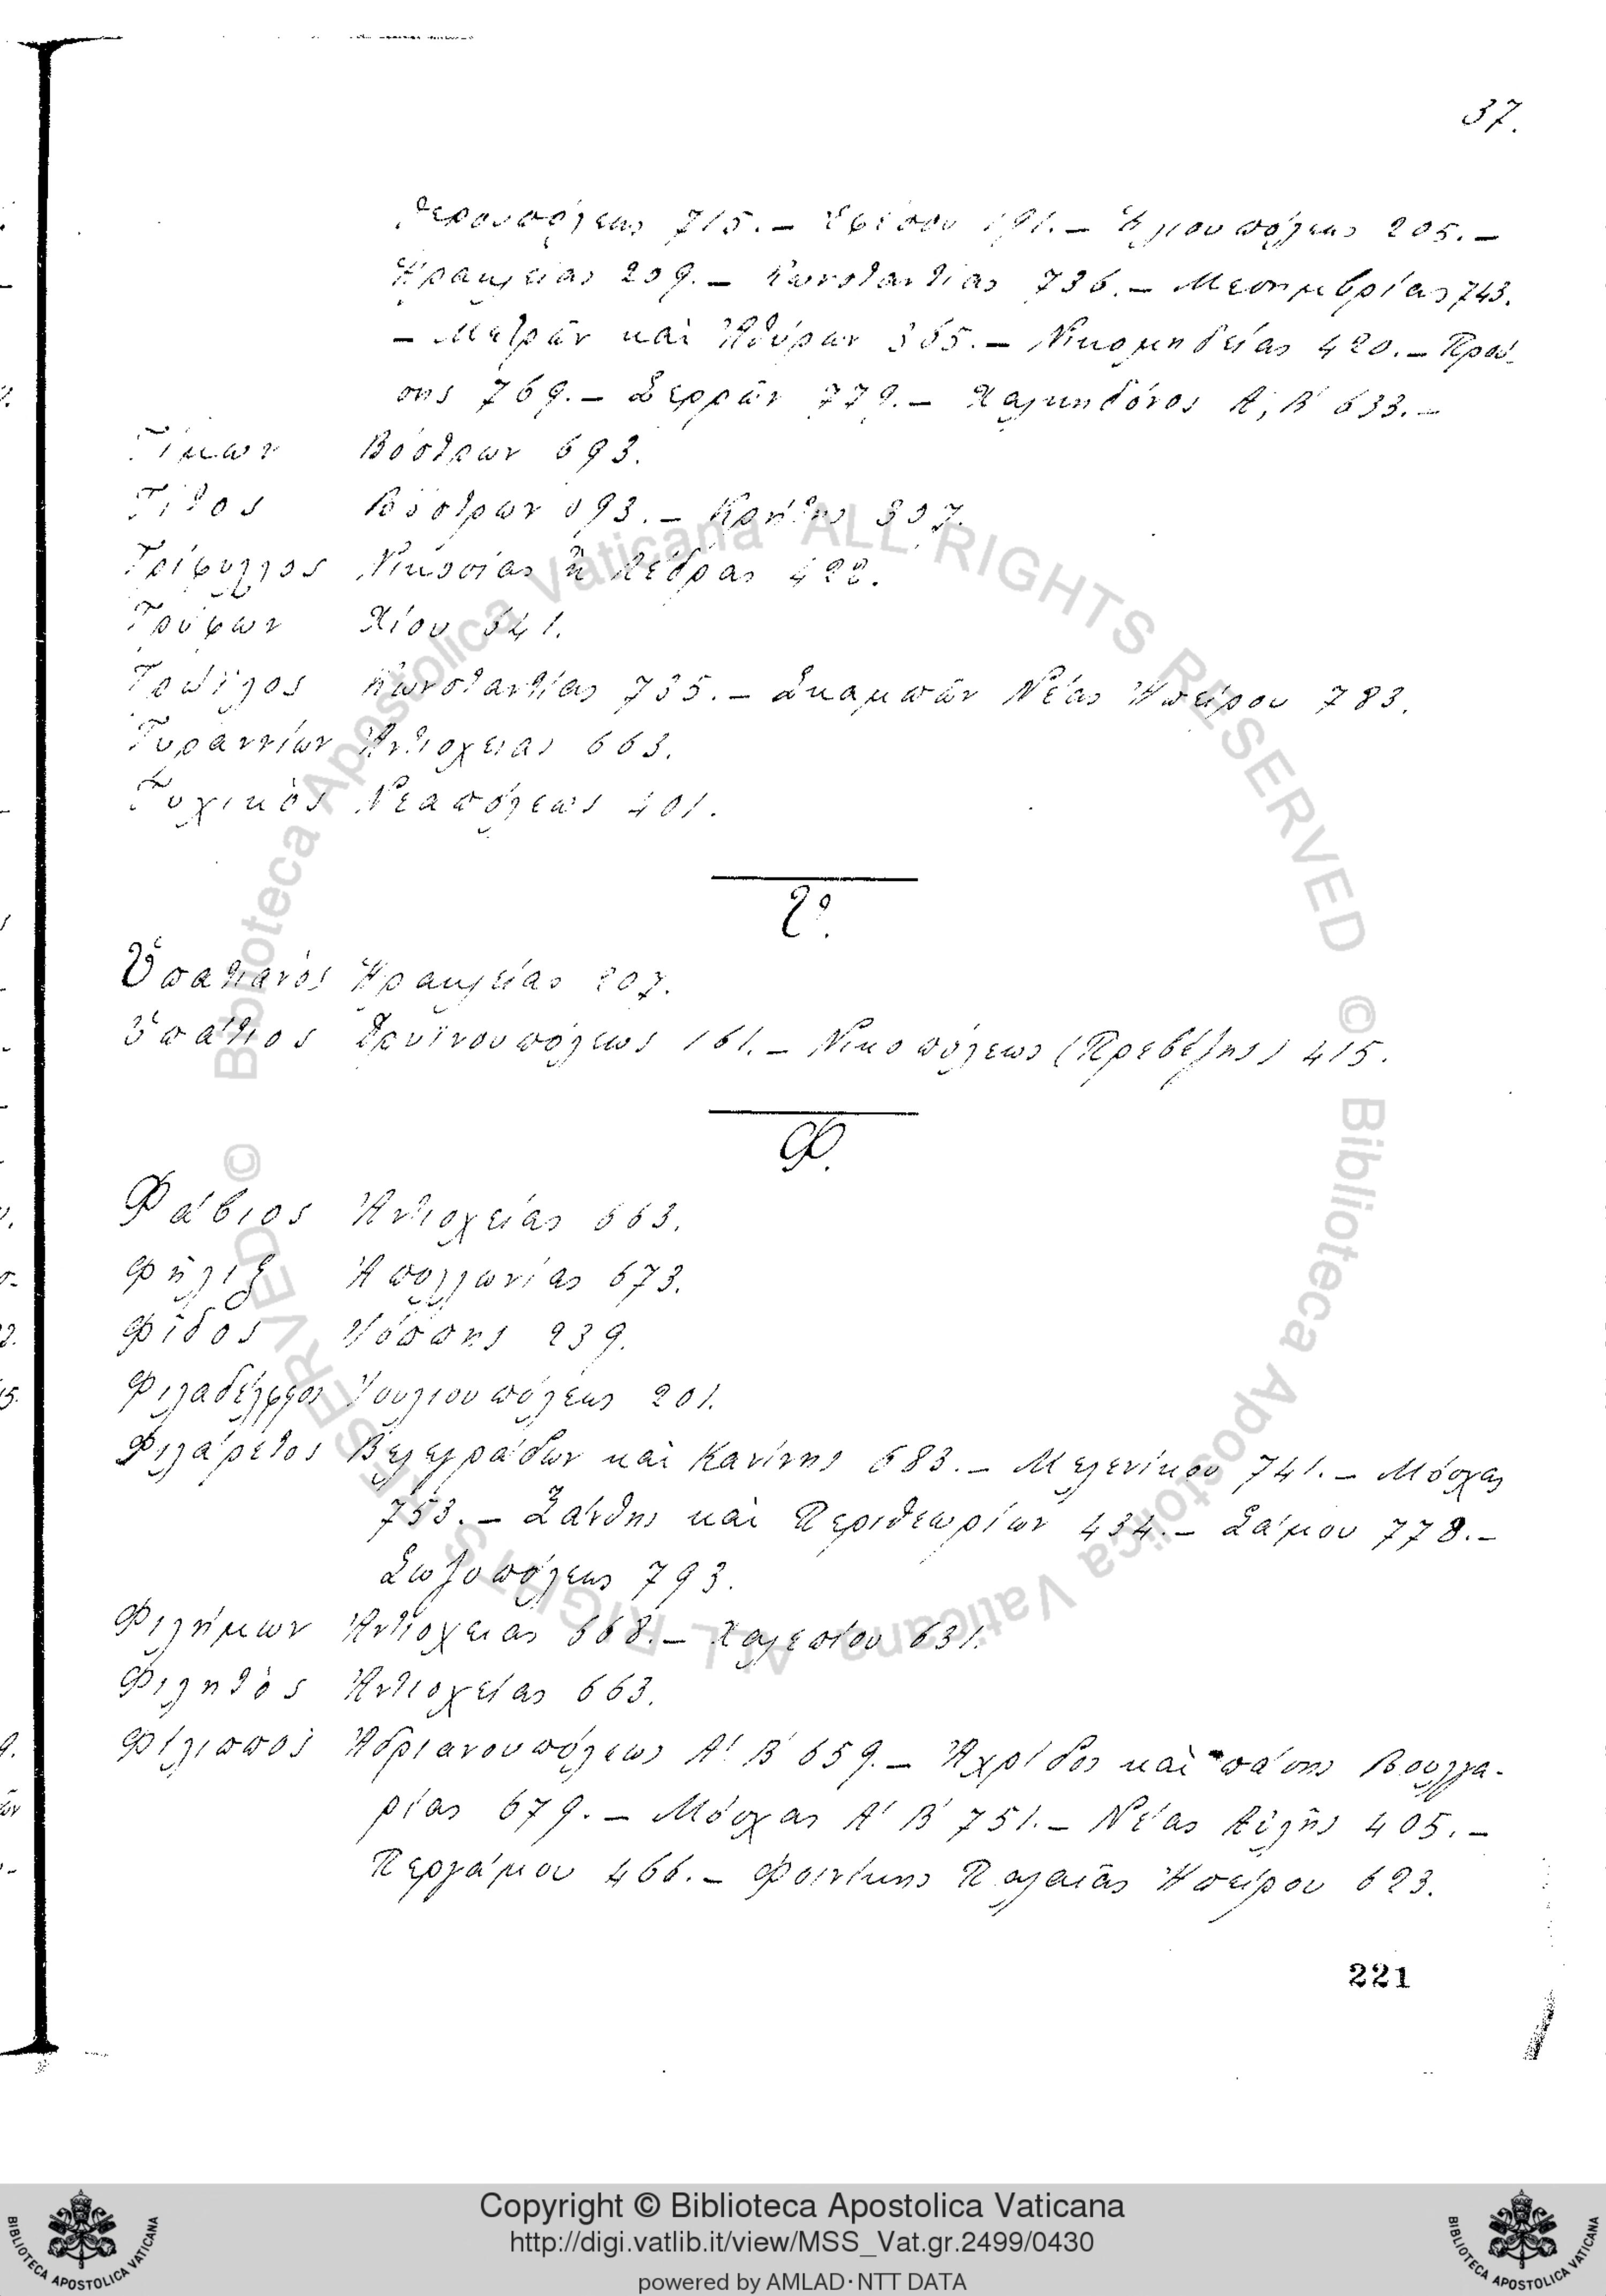 37.
Δερκουπόλεως 715. – Ἐφέσου 191. – Ἡλιουπόλεως 205. –
Ἡρακλείας 209. – Κωνσταντίας 736. – Μεσημβρίας 743.
– Μετρῶν καὶ Ἀθύρων 365. – Νικομηδείας 420. – Πρού-
σης 769. – Σερρῶν 779. – Χαλκηδόνος Α', Β' 633. –
Τίμων Βόστρων 693.
Τίτος Βόστρων 693. – Κρήτης 307.
Τρίφυλλος Νικοσίας ἢ Λέδρας 422.
Τρύφων Χίου 641.
Τρωΐλος Κωνσταντίας 735. – Σκαμπῶν Νέας Ἠπείρου 783.
Τυραννίων Ἀντιοχείας 663.
Τυχικὸς Νεαπόλεως 401.
Υ.
Ὑπατιανός Ἡρακλείας 207.
Ὑπάτιος Δρυϊνουπόλεως 161. – Νικοπόλεως (Πρεβέζης) 415.
Φ.
Φάβιος Ἀντιοχείας 663.
Φῆλιξ Ἀπολλωνίας 673.
Φίδος Ἰόππης 239.
Φιλαδέλφος Ἰουλιουπόλεως 201.
Φιλάρετος Βελεγράδων καὶ Κανίνης 683. – Μελενίκου 741. – Μόσχας
753. – Ξάνθης καὶ Περιθεωρίων 434. – Σάμου 778. –
Σωζοπόλεως 793.
Φιλήμων Ἀντιοχείας 668. – Χαλεπίου 631.
Φιλητὸς Ἀντιοχείας 663.
Φίλιππος Ἀδριανουπόλεως Α' Β' 659. – Ἀχρίδος καὶ πάσης Βουλγα-
ρίας 679. – Μόσχας Α' Β' 751. – Νέας Αὐλῆς 405. –
Περγάμου 466. – Φοινίκης Παλαιᾶς Ἠπείρου 623.
221
© Biblioteca Apostolica Vaticana ALL RIGHTS RESERVED
© Biblioteca Apostolica Vaticana ALL RIGHTS RESERVED
Copyright © Biblioteca Apostolica Vaticana
http://digi.vatlib.it/view/MSS_Vat.gr.2499/0430
powered by AMLAD·NTT DATA
BIBLIOTECA APOSTOLICA VATICANA
BIBLIOTECA APOSTOLICA VATICANA